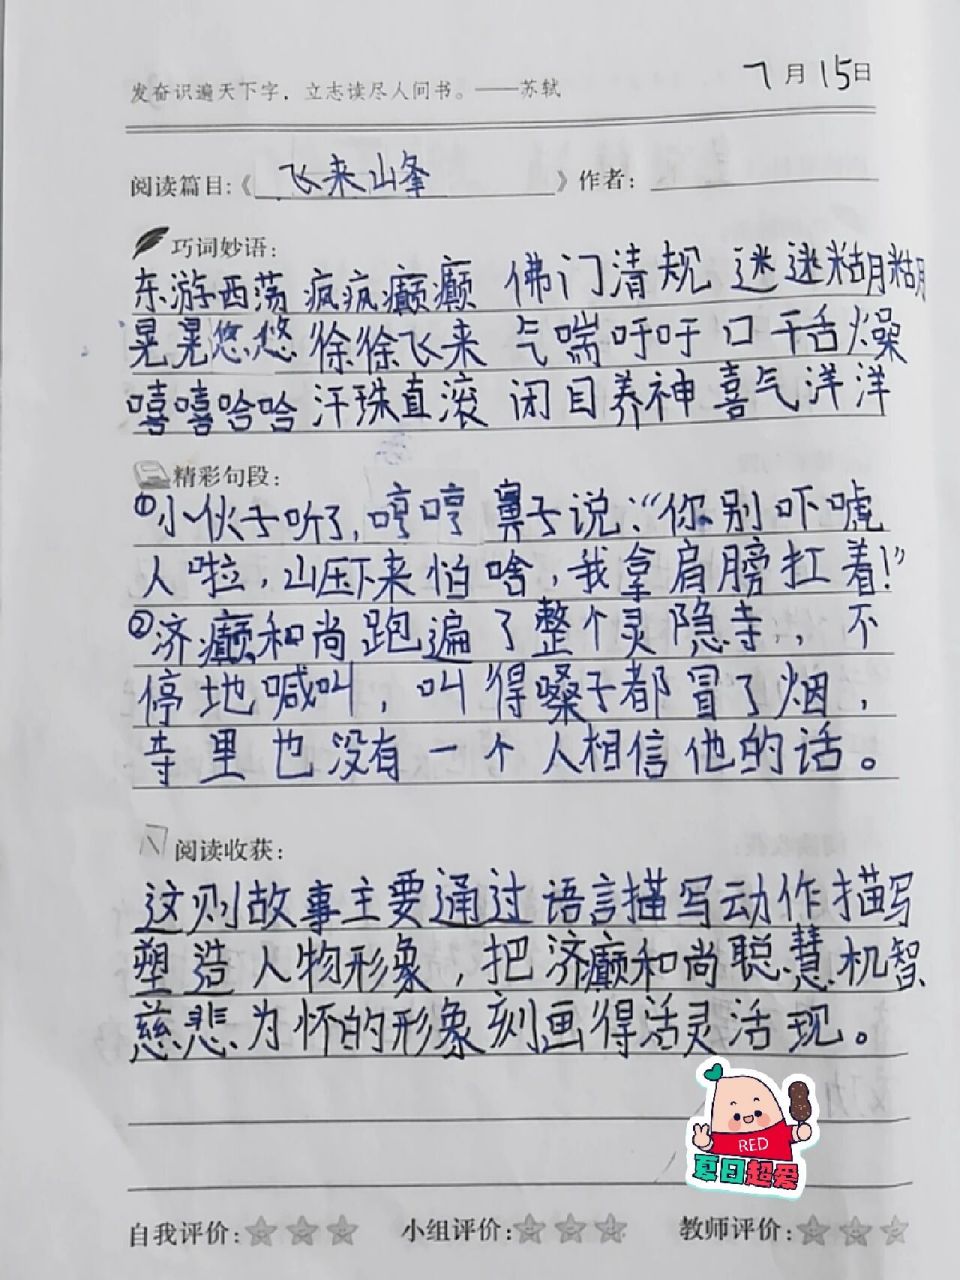 7月15日
发奋识遍天下字，立志读尽人间书。——苏轼
阅读篇目:《飞来山峰》作者：
巧词妙语：
东游西荡 疯疯癫癫 佛门清规 迷迷糊糊
晃晃悠悠 徐徐飞来 气喘吁吁 口干舌燥
嘻嘻哈哈 汗珠直滚 闭目养神 喜气洋洋
精彩句段：
①小伙子听了，哼哼鼻子说:“你别吓唬
人啦，山压下来怕啥，我拿肩膀扛着!”
②济癫和尚跑遍了整个灵隐寺，不
停地喊叫，叫得嗓子都冒了烟，
寺里也没有一个人相信他的话。
阅读收获：
这则故事主要通过语言描写动作描写
塑造人物形象，把济癫和尚聪慧机智
慈悲为怀的形象刻画得活灵活现。
RED
夏日超爱
自我评价: 小组评价: 教师评价: